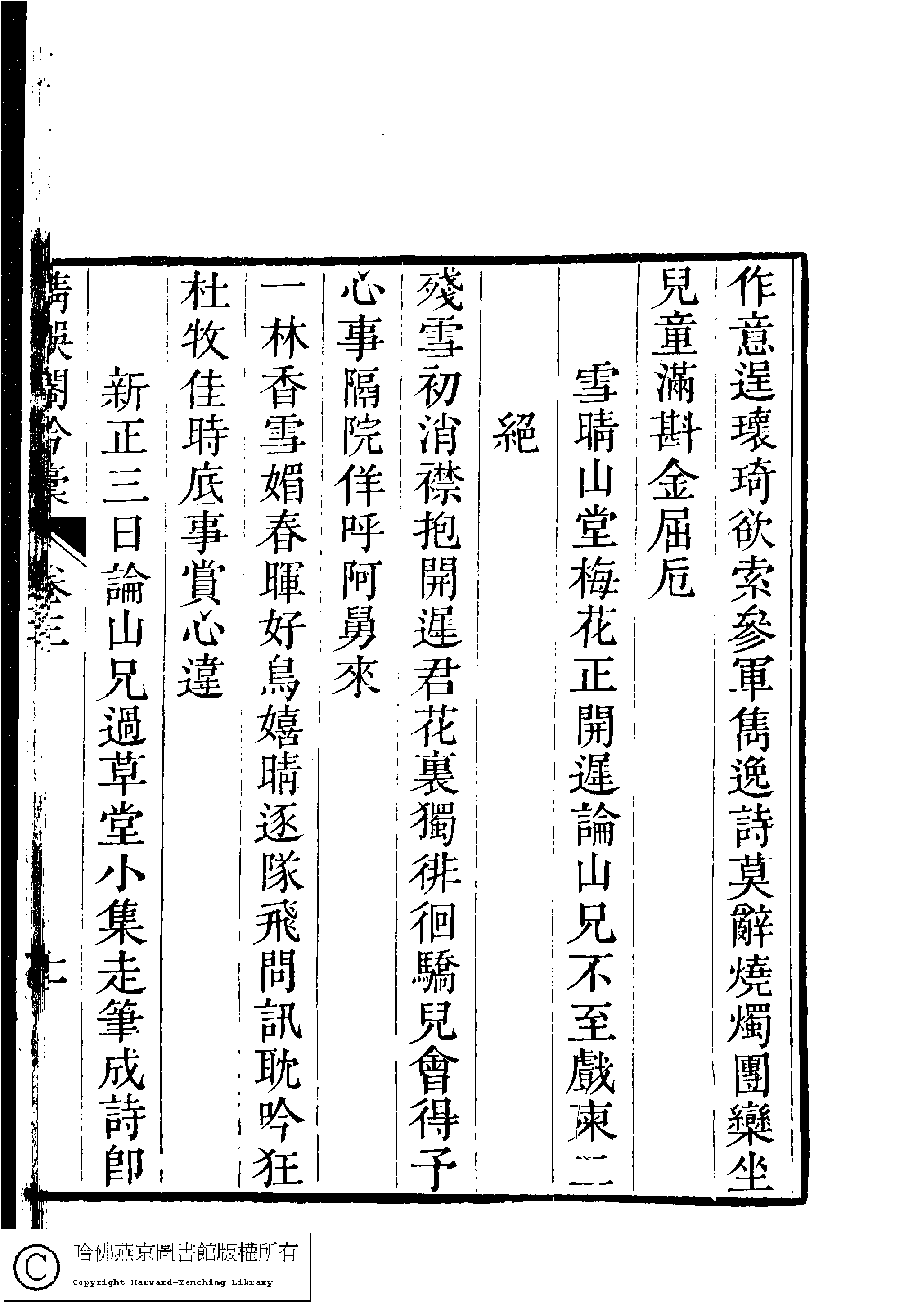 作意逞瓌琦欲索參軍雋逸詩莫辭燒燭團欒坐
兒童滿斟金屈卮
雪晴山堂梅花正開遲論山兄不至戲柬二
絕
殘雪初消襟抱開遲君花裏獨徘徊驕兒會得予
心事隔院佯呼阿舅來
一林香雪媚春暉好鳥嬉晴逐隊飛問訊耽吟狂
杜牧佳時底事賞心違
新正三日論山兄過草堂小集走筆成詩卽
清娛閣吟稾
卷三
哈佛燕京圖書館版權所有
Copyright Harvard-Yenching Library